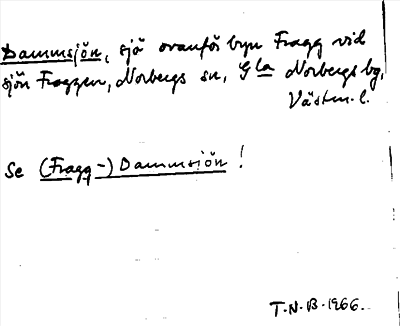 Dammsjön, sjö ovanför byn Fragg vid
sjön Fraggen, Norbergs sn, Gla Norbergs bg,
Västm. l.
Se (Fragg-) Dammsjön!
T.N.B. 1966.